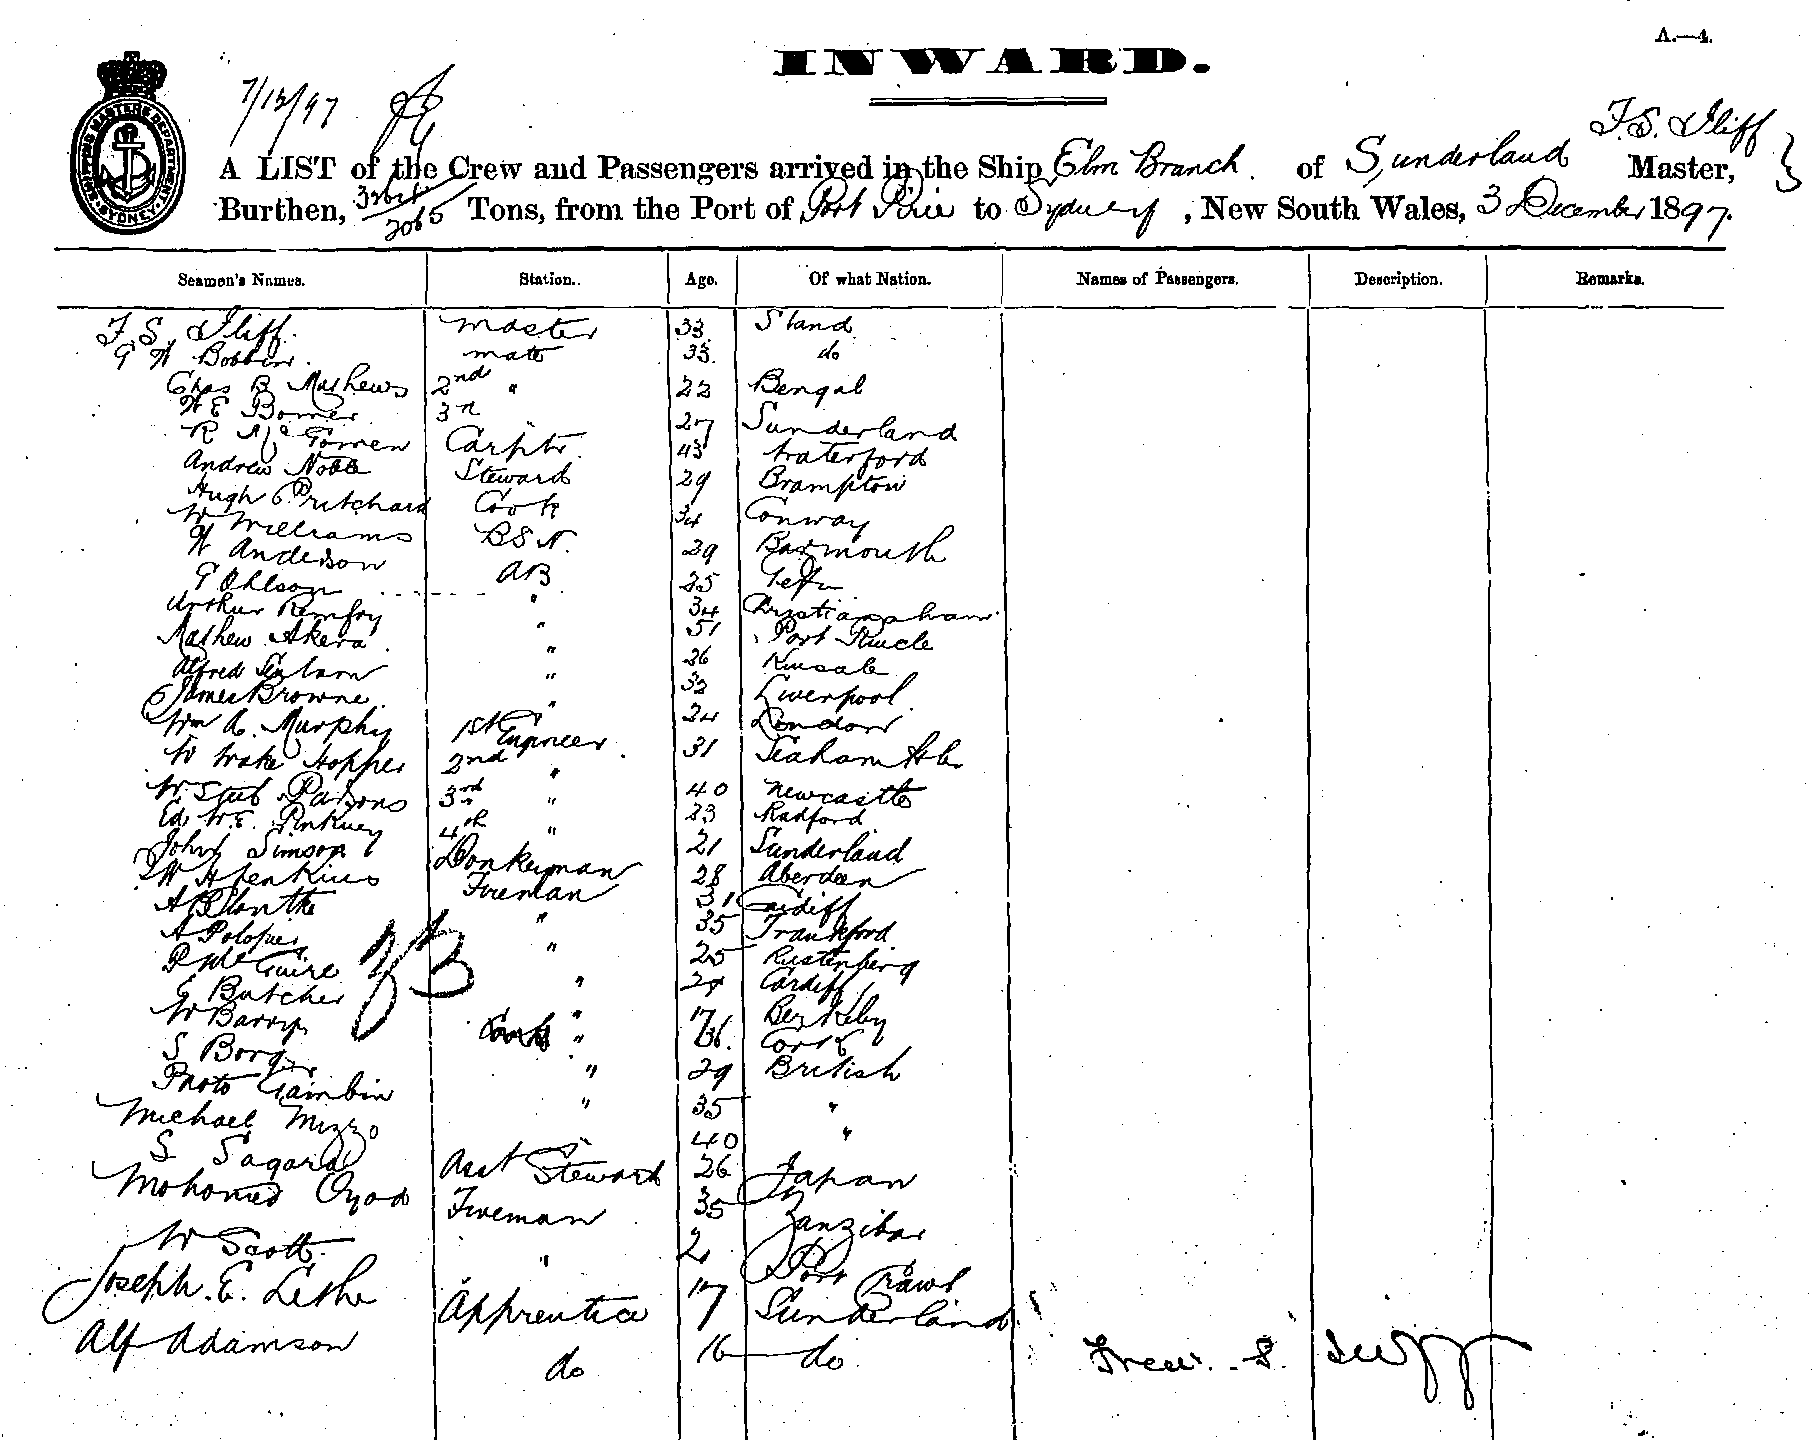 A.—4.
INWARD.
7/12/97
F. S. Iliff
A LIST of the Crew and Passengers arrived in the Ship Elm Branch of Sunderland Master,
Burthen, 2065 Tons, from the Port of Port Pirie to Sydney, New South Wales, 3 December 1897.
SHIPPING MASTERS DEPARTMENT SYDNEY
Seamen's Names. Station. Age. Of what Nation. Names of Passengers. Description. Remarks.
F. S. Iliff. Master 33 S'land
G W Bobbin. mate 33. do
Chas B Mathews 2nd " 22 Bengal
W E Bomer 3rd 27 Sunderland
R Mc Gowen Carptr. 43 Waterford
Andrew Noble Steward 29 Brampton
Hugh Pritchard Cook 34 Conway
W Williams BSN. 29 Barmouth
W Anderson AB 25
G Ohlson " 34
Arthur Remfry " 51 Port
Mathew Akera " 26 Kinsale
Alfred " 32 Liverpool
James Browne " 24 London
Wm A. Murphy 1st Engineer 31 Seaham Hbr
W Wake Hopper 2nd " 40 Newcastle
W. Stub Parsons 3rd " 23 Radford
Ed W. E. Pinkney 4th " 21 Sunderland
John Simson Donkeyman 28 Aberdeen
W H Jenkins Fireman 31 Cardiff
A " 35 Frankford
A " 25 Rustenberg
P McGuire " Cardiff
G Butcher " 17 Berkeley
W Barry " 36. Cork
S Borg " 29 British
Gambin " 35 "
Michael Mizzo 40 "
S Sagara Asst Steward 26 Japan
Mohomed Fireman 35 Zanzibar
W Scott " Port
Joseph. E. Lethe Apprentice 17 Sunderland
Alf Adamson do 16 do
Fred. S. Iliff